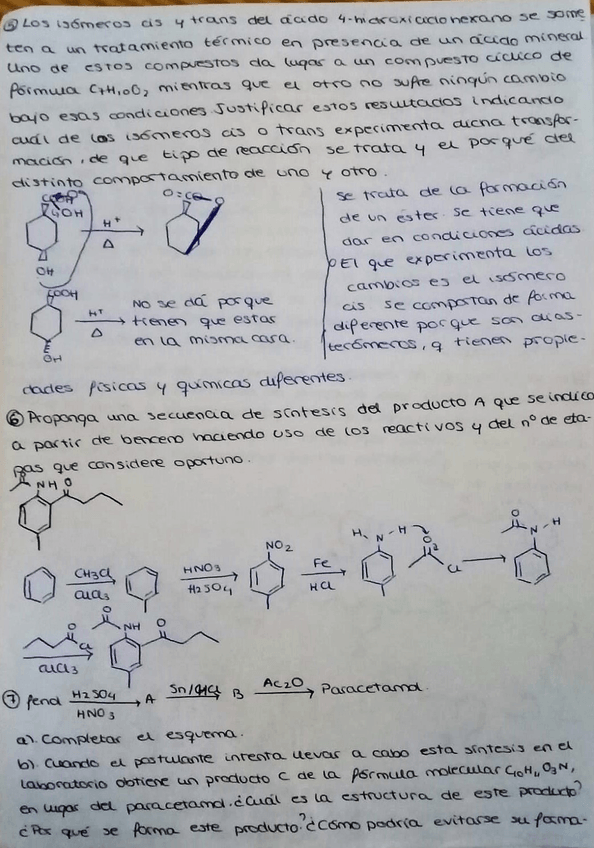 ⑤ Los isómeros cis y trans del ácido 4-hidroxiciclohexano se some
ten a un tratamiento térmico en presencia de un ácido mineral
Uno de estos compuestos da lugar a un compuesto cíclico de
fórmula C7H10O2 mientras que el otro no sufre ningún cambio
bajo esas condiciones Justificar estos resultados indicando
cuál de los isómeros cis o trans experimenta dicha transfor-
mación, de que tipo de reacción se trata y el porqué del
distinto comportamiento de uno y otro.
OH
H+
Δ
O=C
O
OH
Se trata de la formación
de un éster. Se tiene que
dar en condiciones ácidas
El que experimenta los
cambios es el isómero
cis. Se comportan de forma
diferente porque son dias-
terómeros, q tienen propie-
COOH
H+
Δ
OH
No se dá porque
tienen que estar
en la misma cara.
dades físicas y químicas diferentes.
⑥ Proponga una secuencia de síntesis del producto A que se indica
a partir de benceno haciendo uso de los reactivos y del nº de eta-
pas que considere oportuno.
NH O
CH3Cl
AlCl3
HNO3
H2SO4
NO2
Fe
HCl
H N H
O
Cl
O
N-H
O
Cl
AlCl3
O
NH O
⑦ fenol H2SO4 HNO3 A Sn/HCl B Ac2O Paracetamol.
a). Completar el esquema.
b). Cuando el postulante intenta llevar a cabo esta síntesis en el
laboratorio obtiene un producto C de la fórmula molecular C10H11O3N,
en lugar del paracetamol. ¿Cuál es la estructura de este producto?
¿Por qué se forma este producto? ¿Cómo podría evitarse su forma-